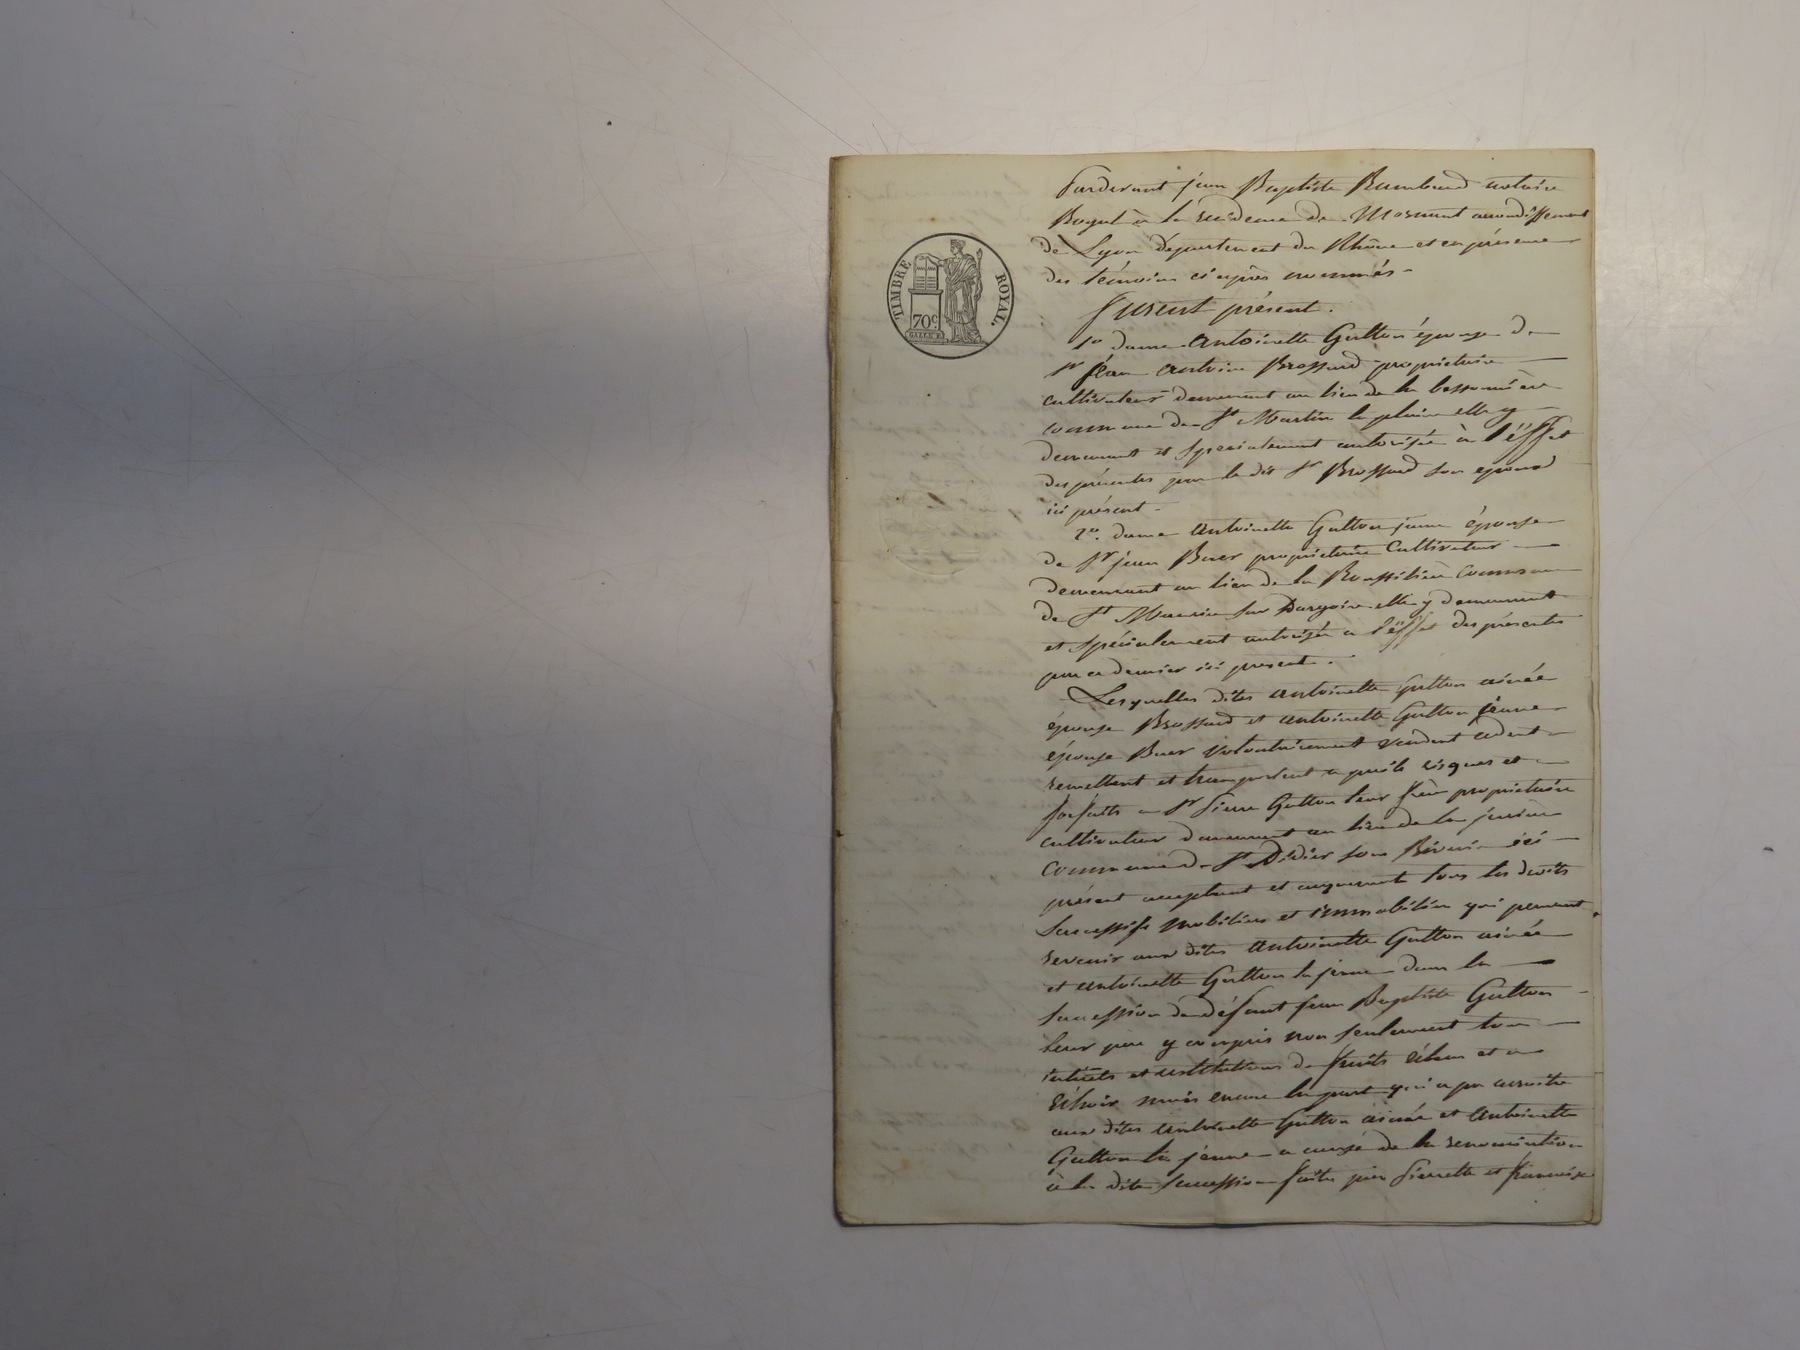 TIMBRE ROYAL.
70c.
Pardevant jean Baptiste Rambaud notaire
Royal à la residence de Mornant arrondissement
de Lyon département du Rhône et en présence
des témoins ci après nommés
furent présent.
1o dame Antoinette Gutton épouse de
Sr jean Antoine Brossard propriétaire
cultivateur demeurant au lieu de la
commune de St Martin la plaine elle y
demeurant et spécialement autorisée à l'éffet
des présentes par le dit Sr Brossard son epoux
ici présent
2o. dame Antoinette Gutton jeune épouse
de Sr jean propriétaire cultivateur
demeurant au lieu de la Roussilière commune
de St Maurice sur Dargoire elle y demeurant
et spécialement autorisée a l'éffet des présentes
par ce dernier ici present.
Lesquelles dites Antoinette Gutton ainée
épouse Brossard et Antoinette Gutton jeune
épouse volontairement vendent cèdent
remettent et transportent a périls risques et
forfaits a Sr Pierre Gutton leur frère propriétaire
cultivateur demeurant au lieu de la
commune de St Didier sous Riverie ici
présent acceptant et acquerant tous les droits
successifs mobiliers et immobiliers qui peuvent
revenir aux dites Antoinette Gutton ainée
et Antoinette Gutton la jeune dans la
succession de défunt jean Baptiste Gutton
leur père y compris non seulement tous
intérêts et restitutions de fruits échus et a
échoir mais encore la part qui a pu accroitre
aux dites Antoinette Gutton ainée et Antoinette
Gutton la jeune a cause de la renonciation
à la dite succession faite par Pierrette et françoise